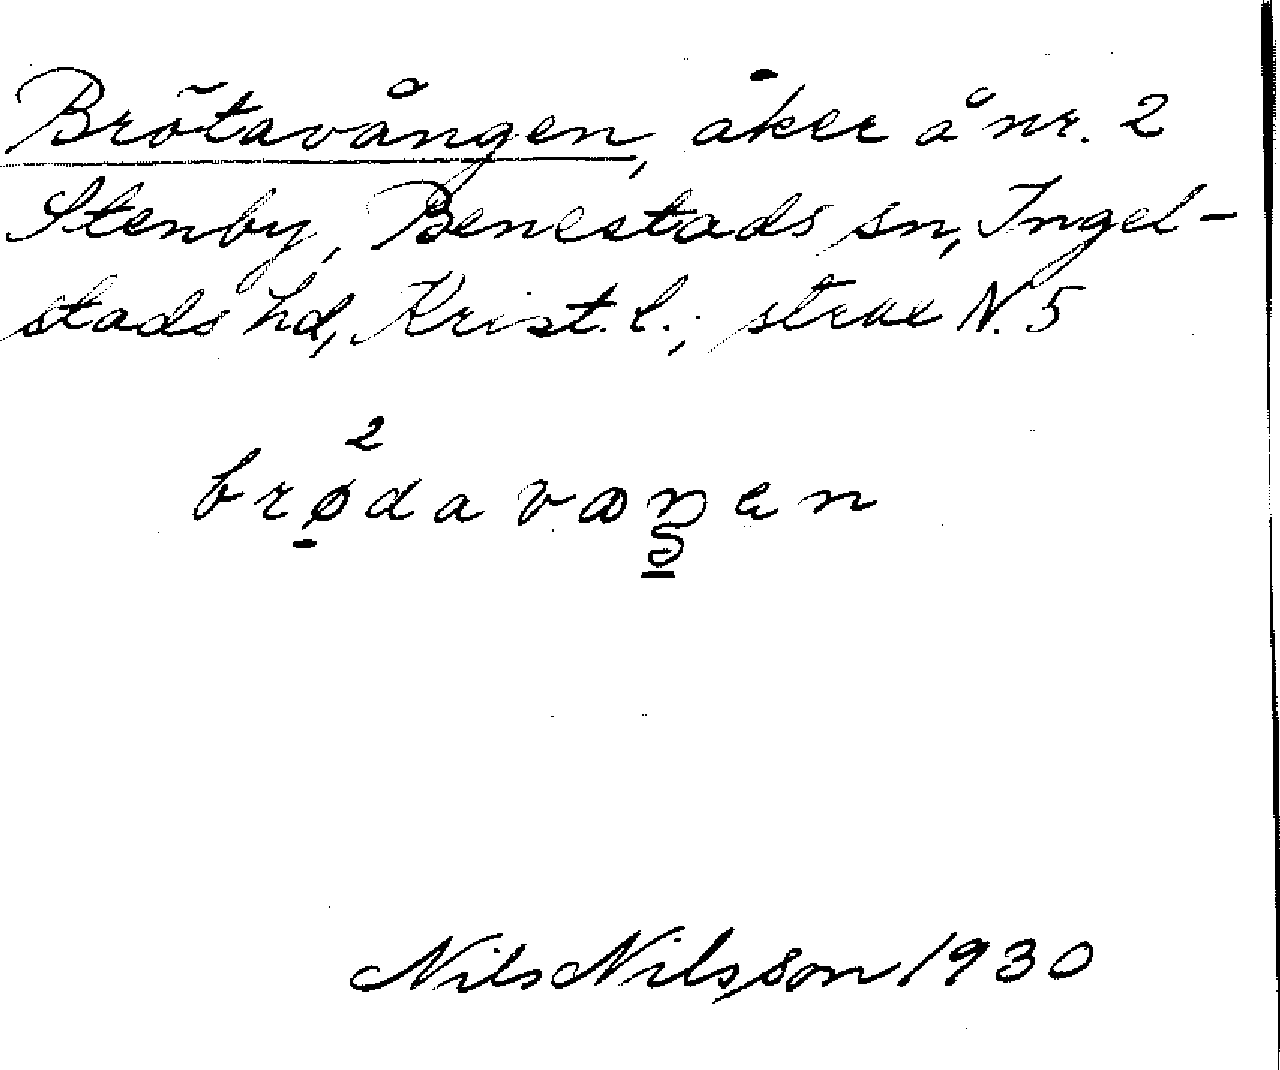 Brötavången, åker å nr. 2
Stenby, Benestads sn, Ingel-
stads hd, Krist. l.; N. 5
2
brødavaŋen
Nils Nilsson 1930